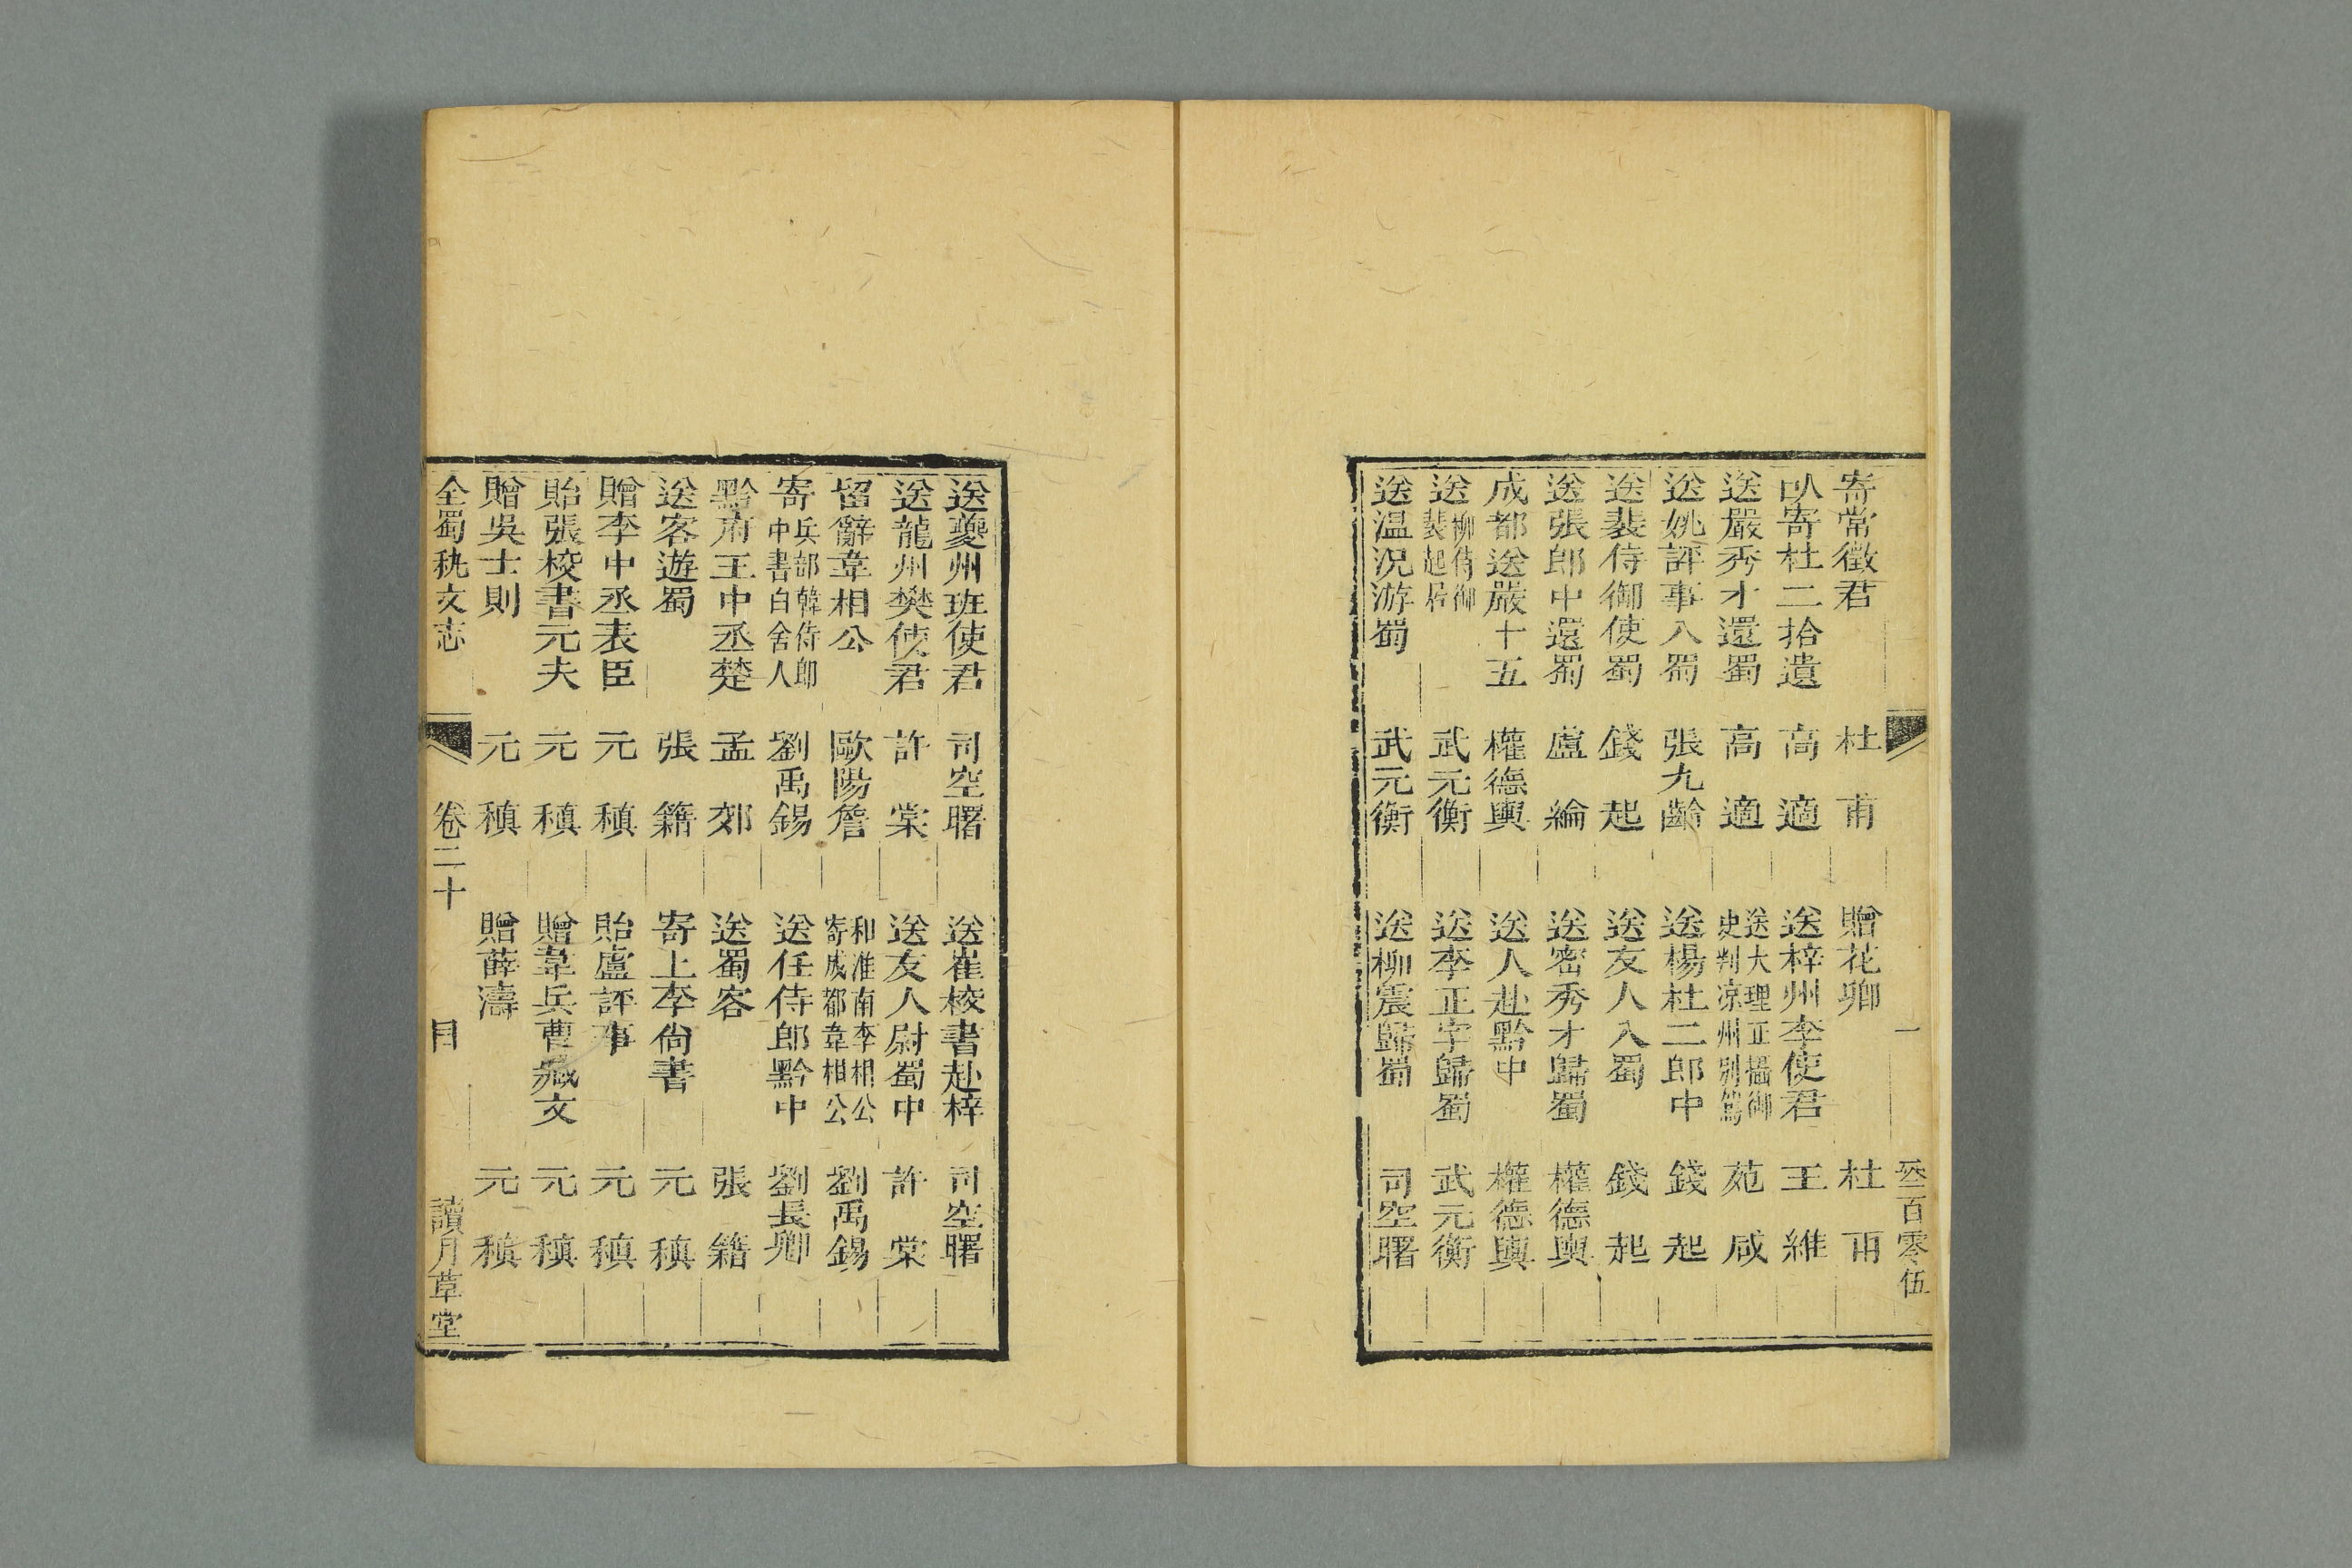 一 叁百零伍
寄常徵君 杜甫 贈花卿 杜甫
以寄杜二拾遺 高適 送梓州李使君 王維
送嚴秀才還蜀 高適 送大理正攝御史判凉州別駕 苑咸
送姚評事入蜀 張九齡 送楊杜二郎中 錢起
送裴侍御使蜀 錢起 送友人入蜀 錢起
送張郎中還蜀 盧綸 送密秀才歸蜀 權德輿
成都送嚴十五 權德輿 送人赴黔中 權德輿
送柳侍御裴起居 武元衡 送李正字歸蜀 武元衡
送温況游蜀 武元衡 送柳震歸蜀 司空曙
送夔州班使君 司空曙 送崔校書赴梓 司空曙
送龍州樊使君 許棠 送友人尉蜀中 許棠
留辭韋相公 歐陽詹 和淮南李相公寄成都韋相公 劉禹錫
寄兵部韓侍郎中書白舍人 劉禹錫 送任侍郎黔中 劉長卿
黔府王中丞楚 孟郊 送蜀客 張籍
送客遊蜀 張籍 寄上李尙書 元稹
贈李中丞表臣 元稹 貽盧評事 元稹
貽張校書元夫 元稹 贈韋兵曹臧文 元稹
贈吳士則 元稹 贈薛濤 元稹
全蜀秇文志 卷二十 目 讀月草堂